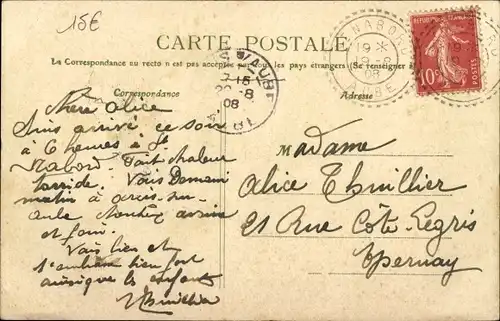 15€
CARTE POSTALE
La Correspondance au recto n'est pas acceptée par tous les pays étrangers (Se renseigner à
Correspondance
Adresse
RÉPUBLIQUE FRANÇAISE
10c
POSTES
NABORD
19 *
08
AUBE
15
8
08
Chère Alice
Suis arrivé ce soir
à 6 heures à St
Nabord. Fait chaleur
torride. Vais Demain
matin à Arcis-sur-
Aube
et foin.
Vais bien et
t'embrasse bien fort
ainsi que les enfants
Thuillier
Madame
Alice Thuillier
21 Rue Côte Legris
Epernay